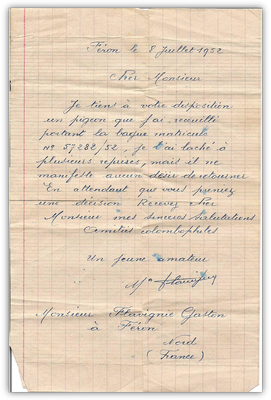 Féron le 8 Juillet 1952
Cher Monsieur
Je tiens à votre disposition
un pigeon que j'ai recueilli
portant la bague matricule
N° 57282/52, je l'ai laché à
plusieurs reprises, mais il ne
manifeste aucun désir de retourner
En attendant que vous preniez
une décision Recevez Cher
Monsieur mes sincères salutations
Amitiés colombophiles
Un jeune amateur
Monsieur Flavignie Gaston
à Féron
Nord
(France)